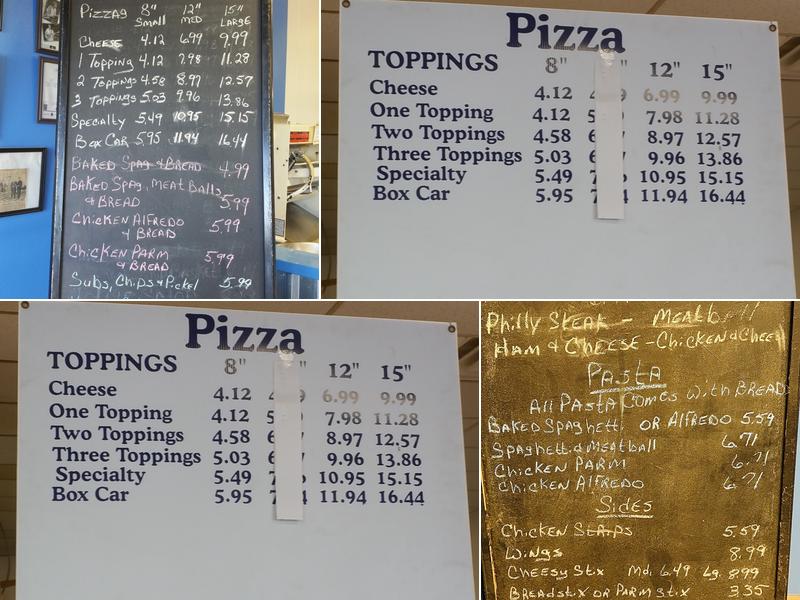 Pizzas 8" 12" 15"
Small Med Large
Cheese 4.12 6.99 9.99
1 Topping 4.12 7.98 11.28
2 Toppings 4.58 8.97 12.57
3 Toppings 5.03 9.96 13.86
Specialty 5.49 10.95 15.15
Box Car 5.95 11.94 16.44
Baked Spag & Bread 4.99
Baked Spag, Meat Balls
& Bread 5.99
Chicken Alfredo
& Bread 5.99
Chicken Parm
& Bread 5.99
Subs, Chips & Pickel 5.99
Pizza
TOPPINGS 8" " 12" 15"
Cheese 4.12 4 9 6.99 9.99
One Topping 4.12 5 7.98 11.28
Two Toppings 4.58 6 7 8.97 12.57
Three Toppings 5.03 6 7 9.96 13.86
Specialty 5.49 7 10.95 15.15
Box Car 5.95 7 4 11.94 16.44
Pizza
TOPPINGS 8" " 12" 15"
Cheese 4.12 4 9 6.99 9.99
One Topping 4.12 5 7.98 11.28
Two Toppings 4.58 6 7 8.97 12.57
Three Toppings 5.03 6 7 9.96 13.86
Specialty 5.49 7 10.95 15.15
Box Car 5.95 7 4 11.94 16.44
Philly Steak - Meatball
Ham & Cheese - Chicken & Chee
Pasta
All Pasta Comes With Bread
Baked Spaghetti OR Alfredo 5.59
Spaghetti & Meatball 6.71
Chicken Parm 6.71
Chicken Alfredo 6.71
Sides
Chicken Strips 5.59
Wings 8.99
Cheesy Stix Md. 6.49 Lg. 8.99
Breadstix OR Parm Stix 3.35